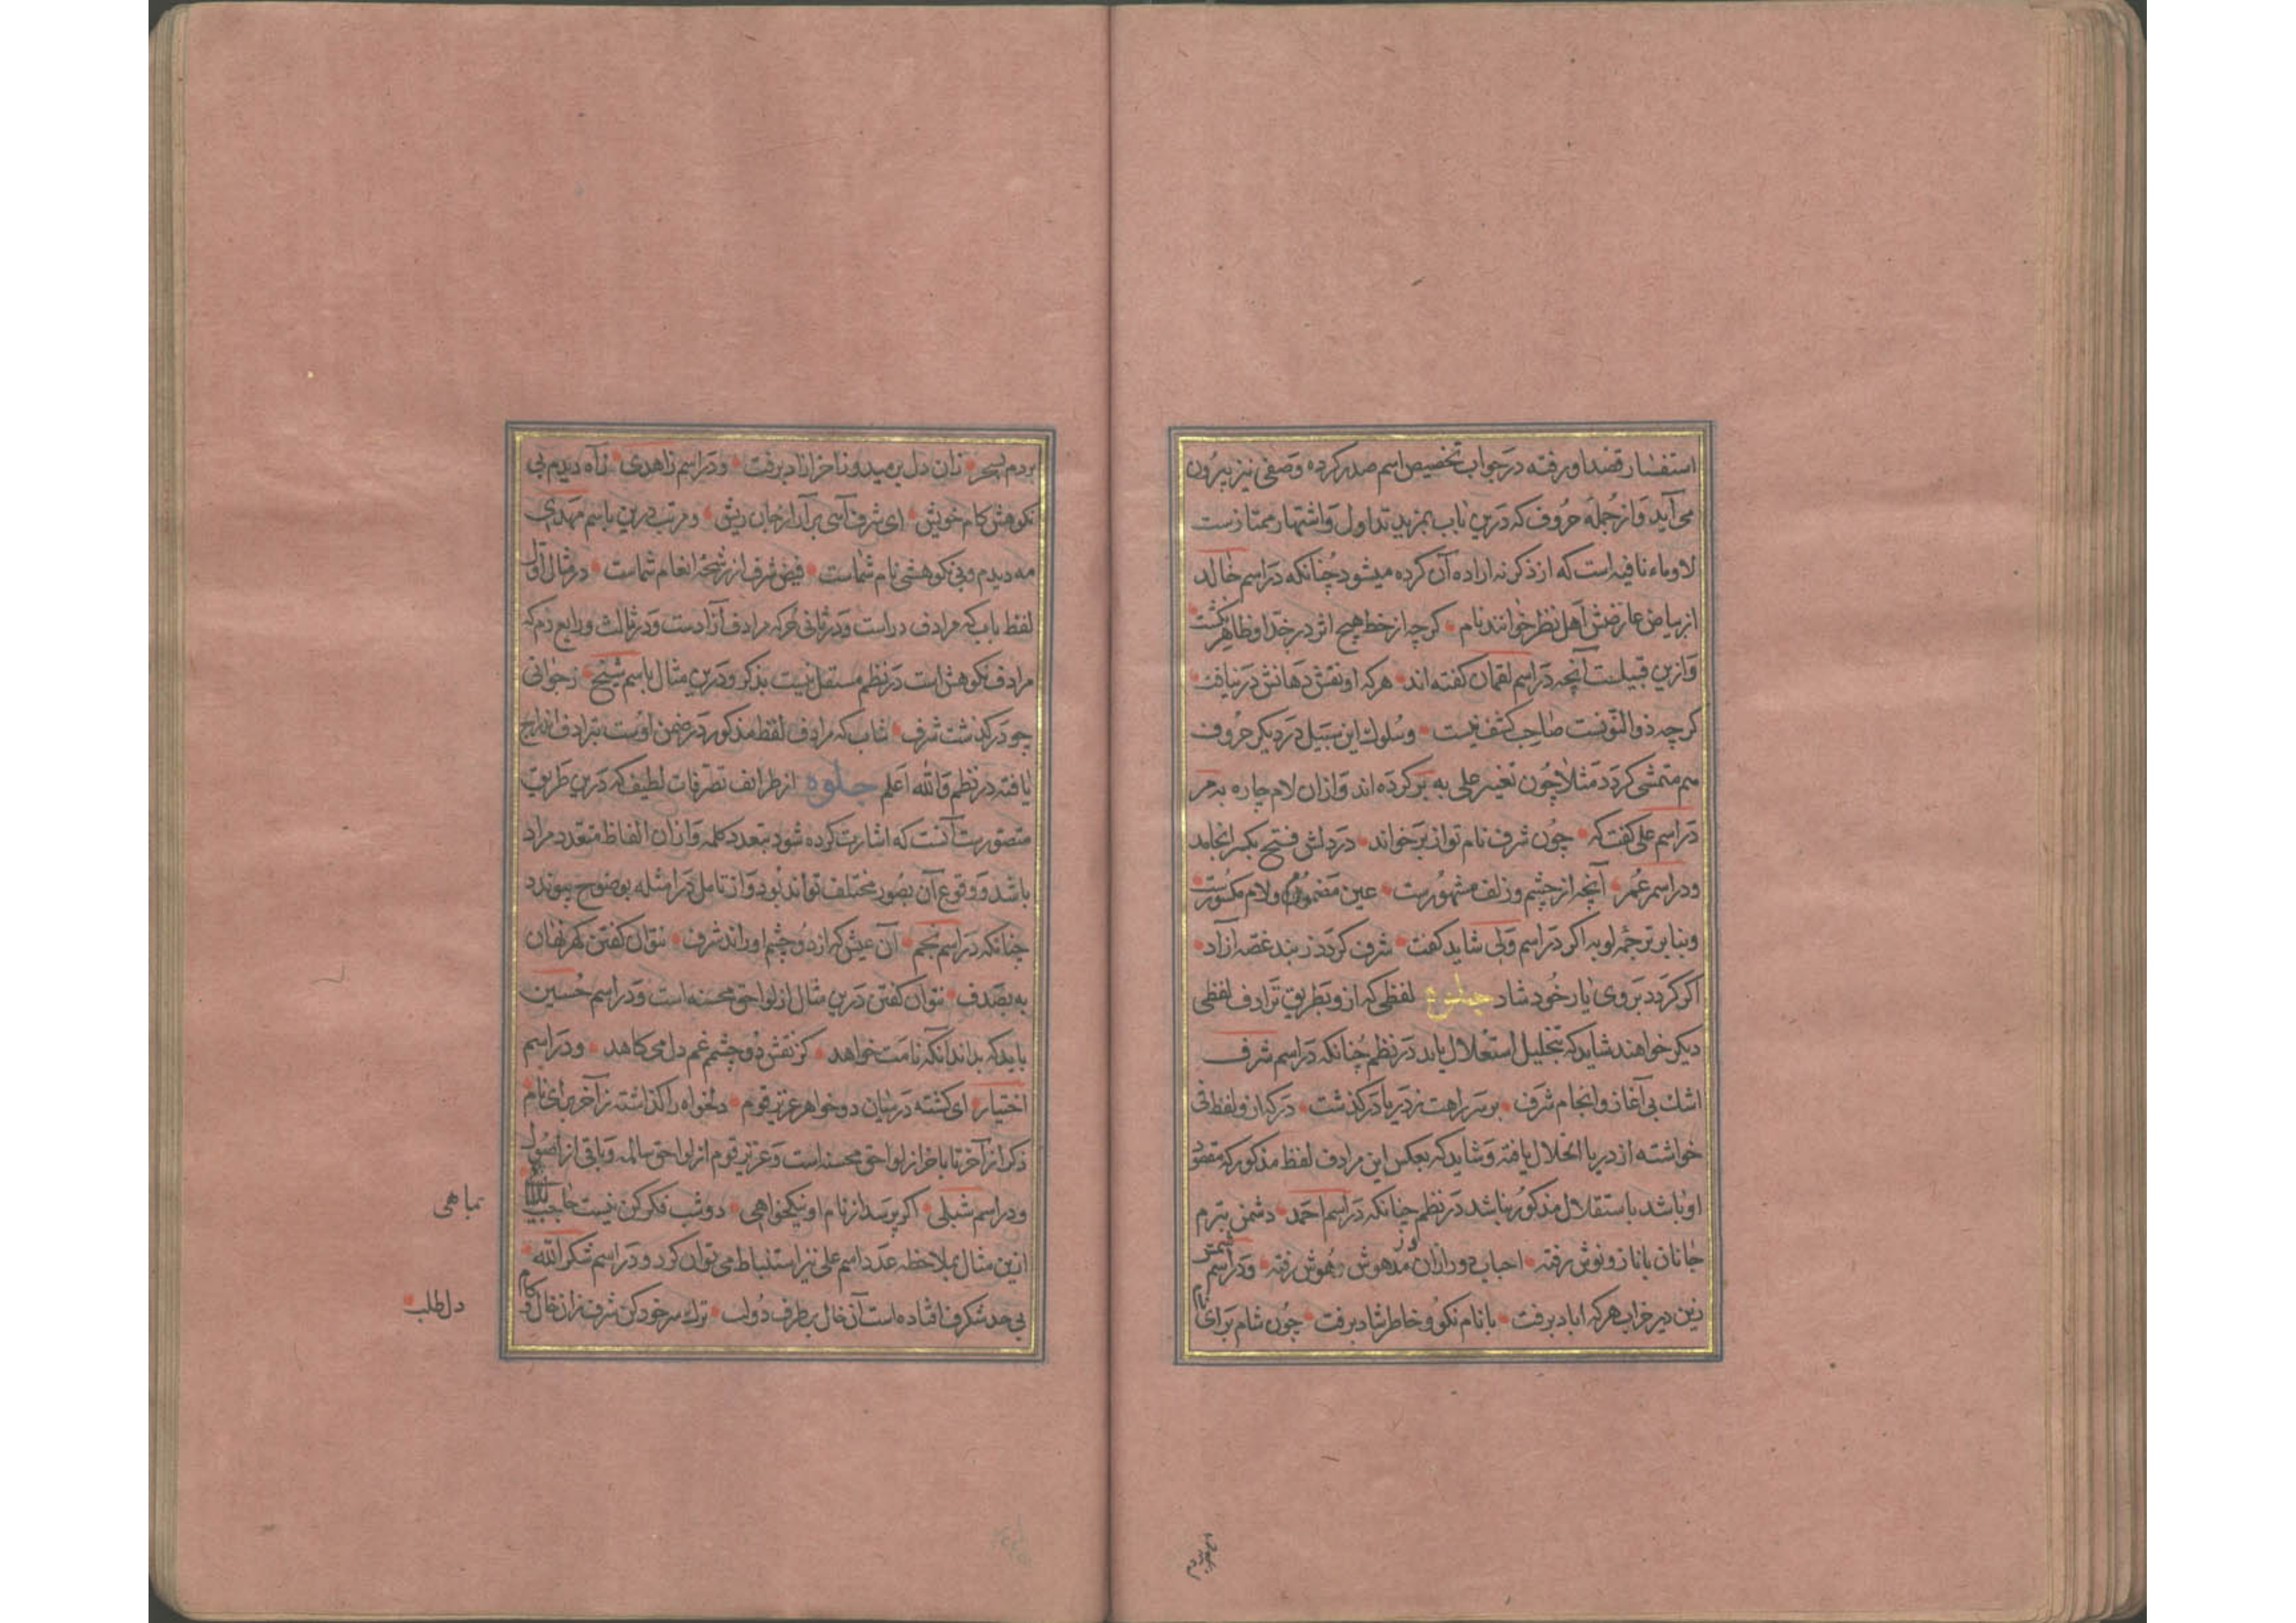 استفسار قصد او رفته در جواب تخصیص اسم صدر کرده وصفی نیز بیرون
می آید و از جمله حروف که درین باب بمزید تداول و اشتهار ممتازست
لا و ماء نافیه است که از ذکر نه اراده آن کرده میشود چنانکه در اسم خالد
از بیاض عارضش اهل نظر خوانند نام کرچه از خط هیچ اثر در خد او ظاهر نکشت
و ازین قبیلست آنچه در اسم لقمان کفته اند هر که او نقش دهانش در نیافت
کرچه ذوالنونست صاحب کشف نیست و سلوک این سبیل در دیکر حروف
هم متمشی کردد مثلا چون تعبیر علی به بر کرده اند و ازان لام جاره به مر
در اسم علی کفت که چون شرف نام تو از بر خواند در دلش فتح بکسر انجامد
و در اسم عمر آنچه از چشم و زلف مشهورست عین مضموم و لام مکسورست
و بنابر ترجمه لو به اکر در اسم ولی شاید کفت شرف کردد ز بند غصه آزاد
اکر کردد بروی یار خود شاد جلوه لفظی که ازو بطریق ترادف لفظی
دیکر خواهند شاید که بتحلیل استقلال یابد در نظم چنانکه در اسم شرف
اشک بی آغاز و انجام شرف بر سر راهت ز دریا در کذشت
خواسته از دریا انحلال یافته و شاید که بعکس این مرادف لفظ مذکور که مقصود
او باشد باستقلال مذکور نباشد در نظم چنانکه در اسم احمد دشمن ببرم
جانان با ناز و نوش رفته احباب دور ازان در مدهوش و هوش رفته و در اسم
زین دیر خراب هر که آباد برفت با نام نکو و خاطر شاد برفت چون شام برای نام
بردم بسحر زان دل برمید و آزاد برفت و در اسم زاهدی زاه دیدم بی
نکوهش کام خویش ای شرف آسی برآر از جان ریش و مرتب درین باسم مهدی
مه دیدم و بی نکوهشی نام شماست فیض شرف از رشحه انعام شماست در مثال اول
لفظ باب که مرادف دراست و در ثانی حر که مرادف آزادست و در ثالث و رابع ذم که
مرادف نکوهش است در نظم مستقل نیست بذکر و درین مثال باسم شیخ ز جوانی
چو در کذشت شرف شاب که مرادف لفظ مذکور در ضمن اوست بترادف اندراج
یافته در نظم والله اعلم جلوه از طرائف تصرفات لطیف که درین طریق
متصورست آنست که اشارت کرده شود بتعدد کلمه و ازان الفاظ متعدد مراد
باشد و وقوع آن بصور مختلف تواند بود و از تامل در امثله بوضوح پیوندد
چنانکه در اسم نجم آن عیش که از دو چشم او راند شرف نتوان کفتن
به بصدف نتوان کفتن درین مثال از لواحق محسنه است و در اسم حسین
باید که بداند آنکه نامت خواهد کز نقش دو چشم غم دل می کاهد و در اسم
اختیار ای کشته در میان دو خواهر عزیز قوم دلخواه را کذاشته ز آخر برای نام
ذکر از آخر تا بآخر از لواحق محسنه است و عزیز قوم از لواحق سالمه و باقی از اصول
و در اسم شبلی اکر پرسد از نام او نیکخواهی دو شب فکر کن نیست حاجب
ازین مثال بملاحظه عدد اسم علی نیز استنباط می توان کرد و در اسم شکرالله
بی حد شکر فتاده است آن خال بطرف دو لب ترک سر خود کن شرف زان خال و کام
بماهی
دل طلب